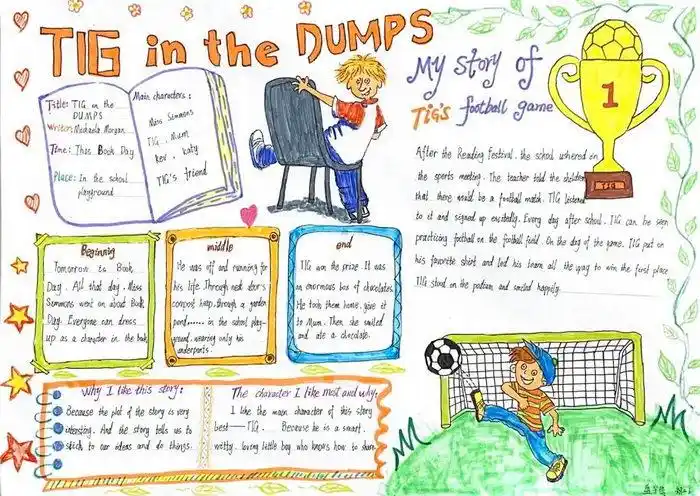 TIG in the DUMPS
Title: TIG in the
DUMPS
Writer: Michaela Morgan
Time: This Book Day
Place: In the school
playground
Main characters:
Miss Simmons
TIG. Mum
Kev. Katy
TIG's friend
My story of
TIG's football game
1
TIG
After the Reading Festival. the school ushered in
the sports meeting. The teacher told the children
that there would be a football match. TIG listened
to it and signed up excitedly. Every day after school. TIG can be seen
practicing football on the football field. On the day of the game. TIG put on
his favorite shirt and led his team all the way to win the first place
TIG stood on the podium and smiled happily.
Beginning
Tomorrow is Book
Day. All that day. Miss
Simmons went on about Book
Day. Everyone can dress
up as a character in the book
middle
He was off and running for
his life. Through next door's
compost heap, through a garden
pond...... in the school play-
ground, wearing only his
underpants.
end
TIG won the prize. It was
an enormous box of chocolates.
He took them home, give it
to Mum. Then she smiled
and ate a chocolate.
Why I like this story:
Because the plot of the story is very
interesting. And the story tells us to
stick to our ideas and do things.
The character I like most and why:
I like the main character of this story
best—TIG. Because he is a smart,
witty, loving little boy who knows how to share.